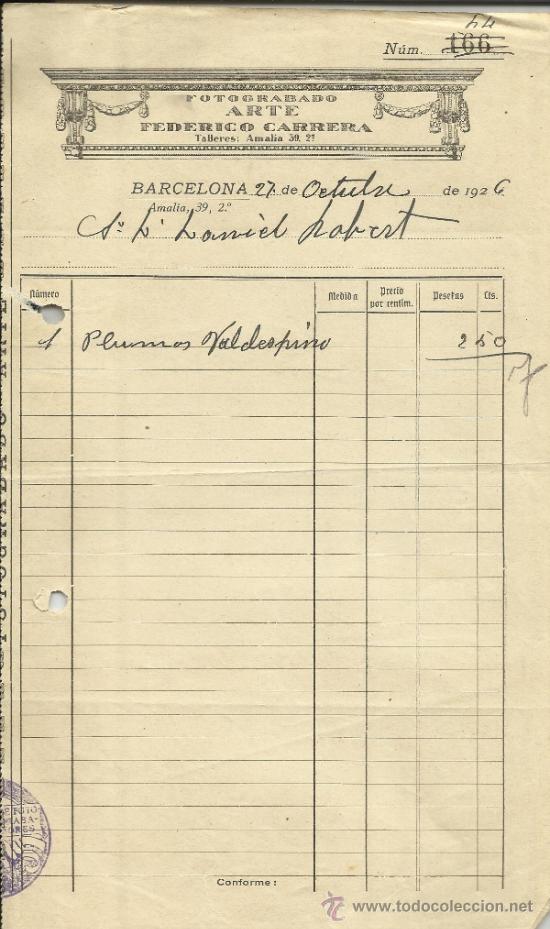 44
Núm. 166
FOTOGRABADO
ARTE
FEDERICO CARRERA
Talleres: Amalia 39, 2º
BARCELONA 27 de Octubre de 1926
Amalia, 39, 2.º
Sr. D. Daniel Robert
Número Medida Precio por centím. Pesetas Cts.
1 Plumas Valdespino 2 50
Conforme:
www.todocoleccion.net